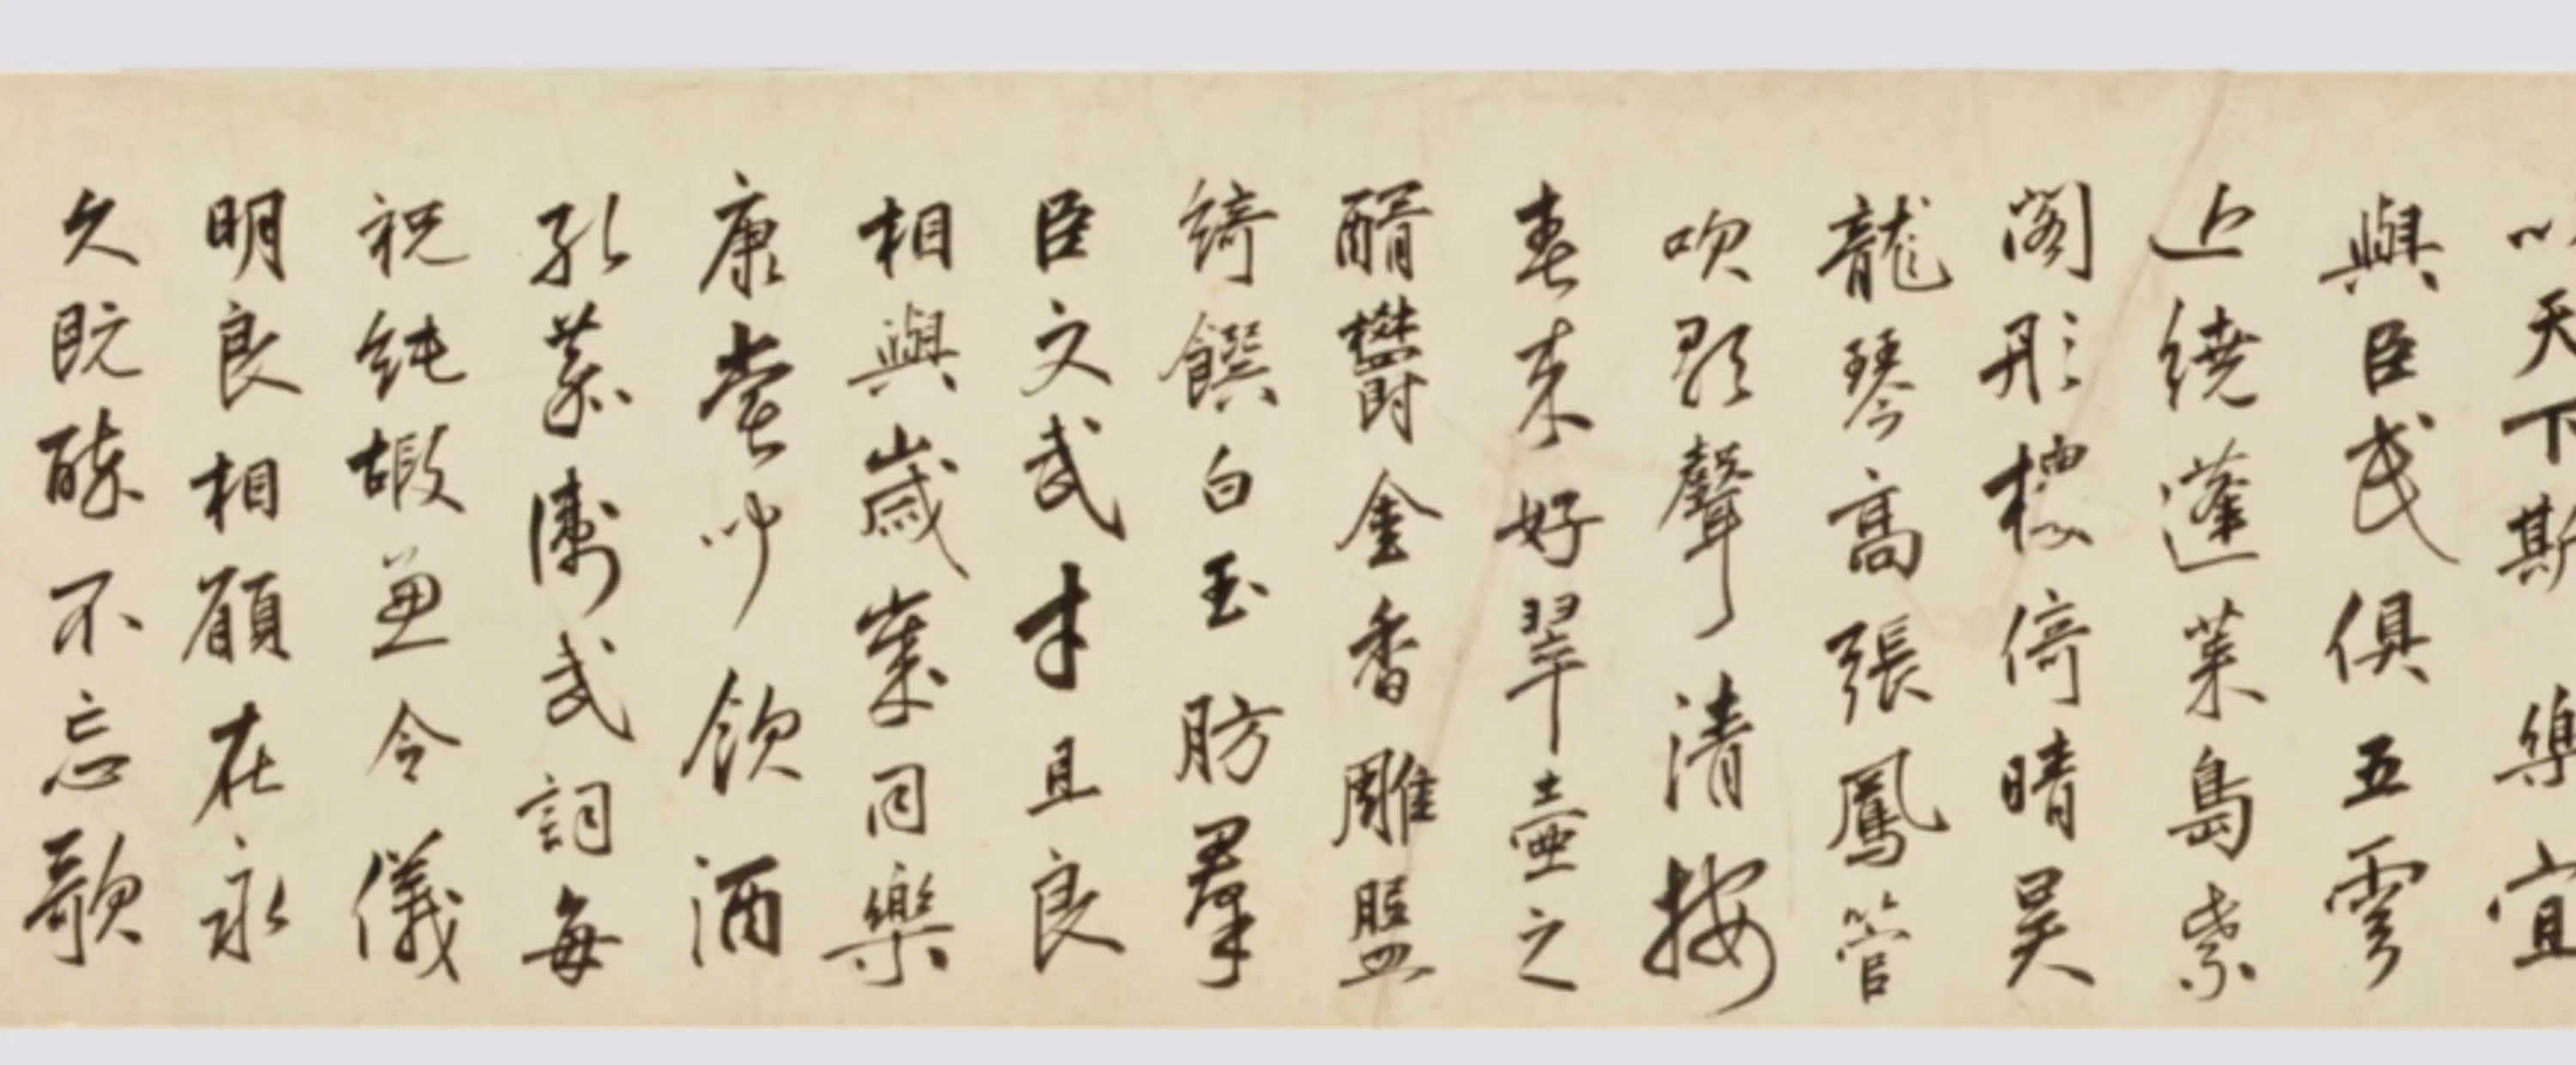 以天下斯樂宜
與臣民俱五雲
近繞蓬萊島紫
閣彤樓倚晴昊
龍琴高張鳳管
吹歌聲清按
春來好翠壺之
醑鬱金香雕盤
綺饌白玉肪羣
臣文武才且良
相與歲業同樂
康嘗聞飲酒
孔藂衛武詞每
祝純嘏兼令儀
明良相顧在永
久既醉不忘歌